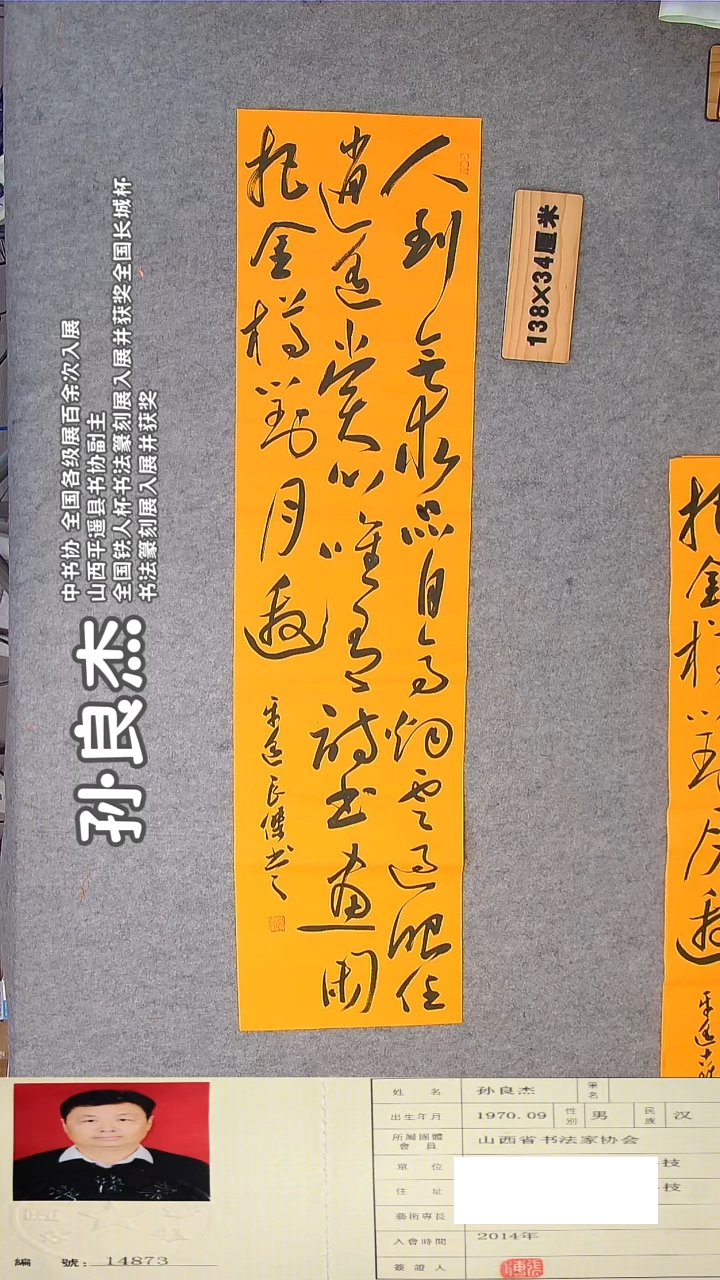 人到无求品自高烟云过眼任
逍遥小唯有诗书画闲
把金樽对月邀
平遥良傑书
138×34厘米
把金樽对月邀
平遥
孙良杰
中书协 全国各级展百余次入展
山西平遥县书协副主
全国铁人杯书法篆刻展入展并获奖全国长城杯
书法篆刻展入展并获奖
姓 名 孙良杰 筆名
出生年月 1970.09 性別 男 民族 汉
所屬團體會員 山西省书法家协会
單 位 技
住 址 技
藝術專長
入會時間 2014年
簽證人
編 號: 14873